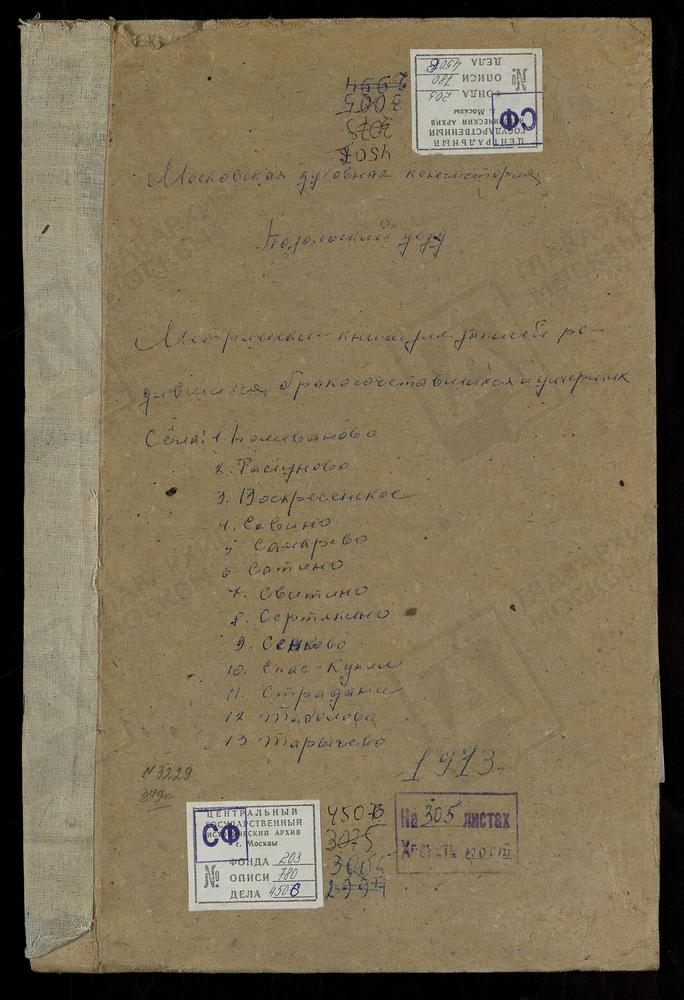 2994
3005
3075
4507
ЦЕНТРАЛЬНЫЙ
ГОСУДАРСТВЕННЫЙ
ИСТОРИЧЕСКИЙ АРХИВ
г. Москвы
СФ
№
ФОНДА 203
ОПИСИ 780
ДЕЛА 4508
Московская духовная консистория
Подольский уезд
Метрические книги для записей ро-
дившихся, бракосочетавшихся и умерших
Сёла: 1. Коливаново
2. Растуново
3. Воскресенское
4. Савино
5. Самарево
6. Сатино
7. Свитино
8. Сертякино
9. Сенково
10. Спас-Купля
11. Страдань
12. Таболово
13. Тарычево
1913 г.
N 3229
ЦЕНТРАЛЬНЫЙ
ГОСУДАРСТВЕННЫЙ
ИСТОРИЧЕСКИЙ АРХИВ
г. Москвы
СФ
№
ФОНДА 203
ОПИСИ 780
ДЕЛА 4508
3075
3005
2994
На 305 листах
Хранить пост.